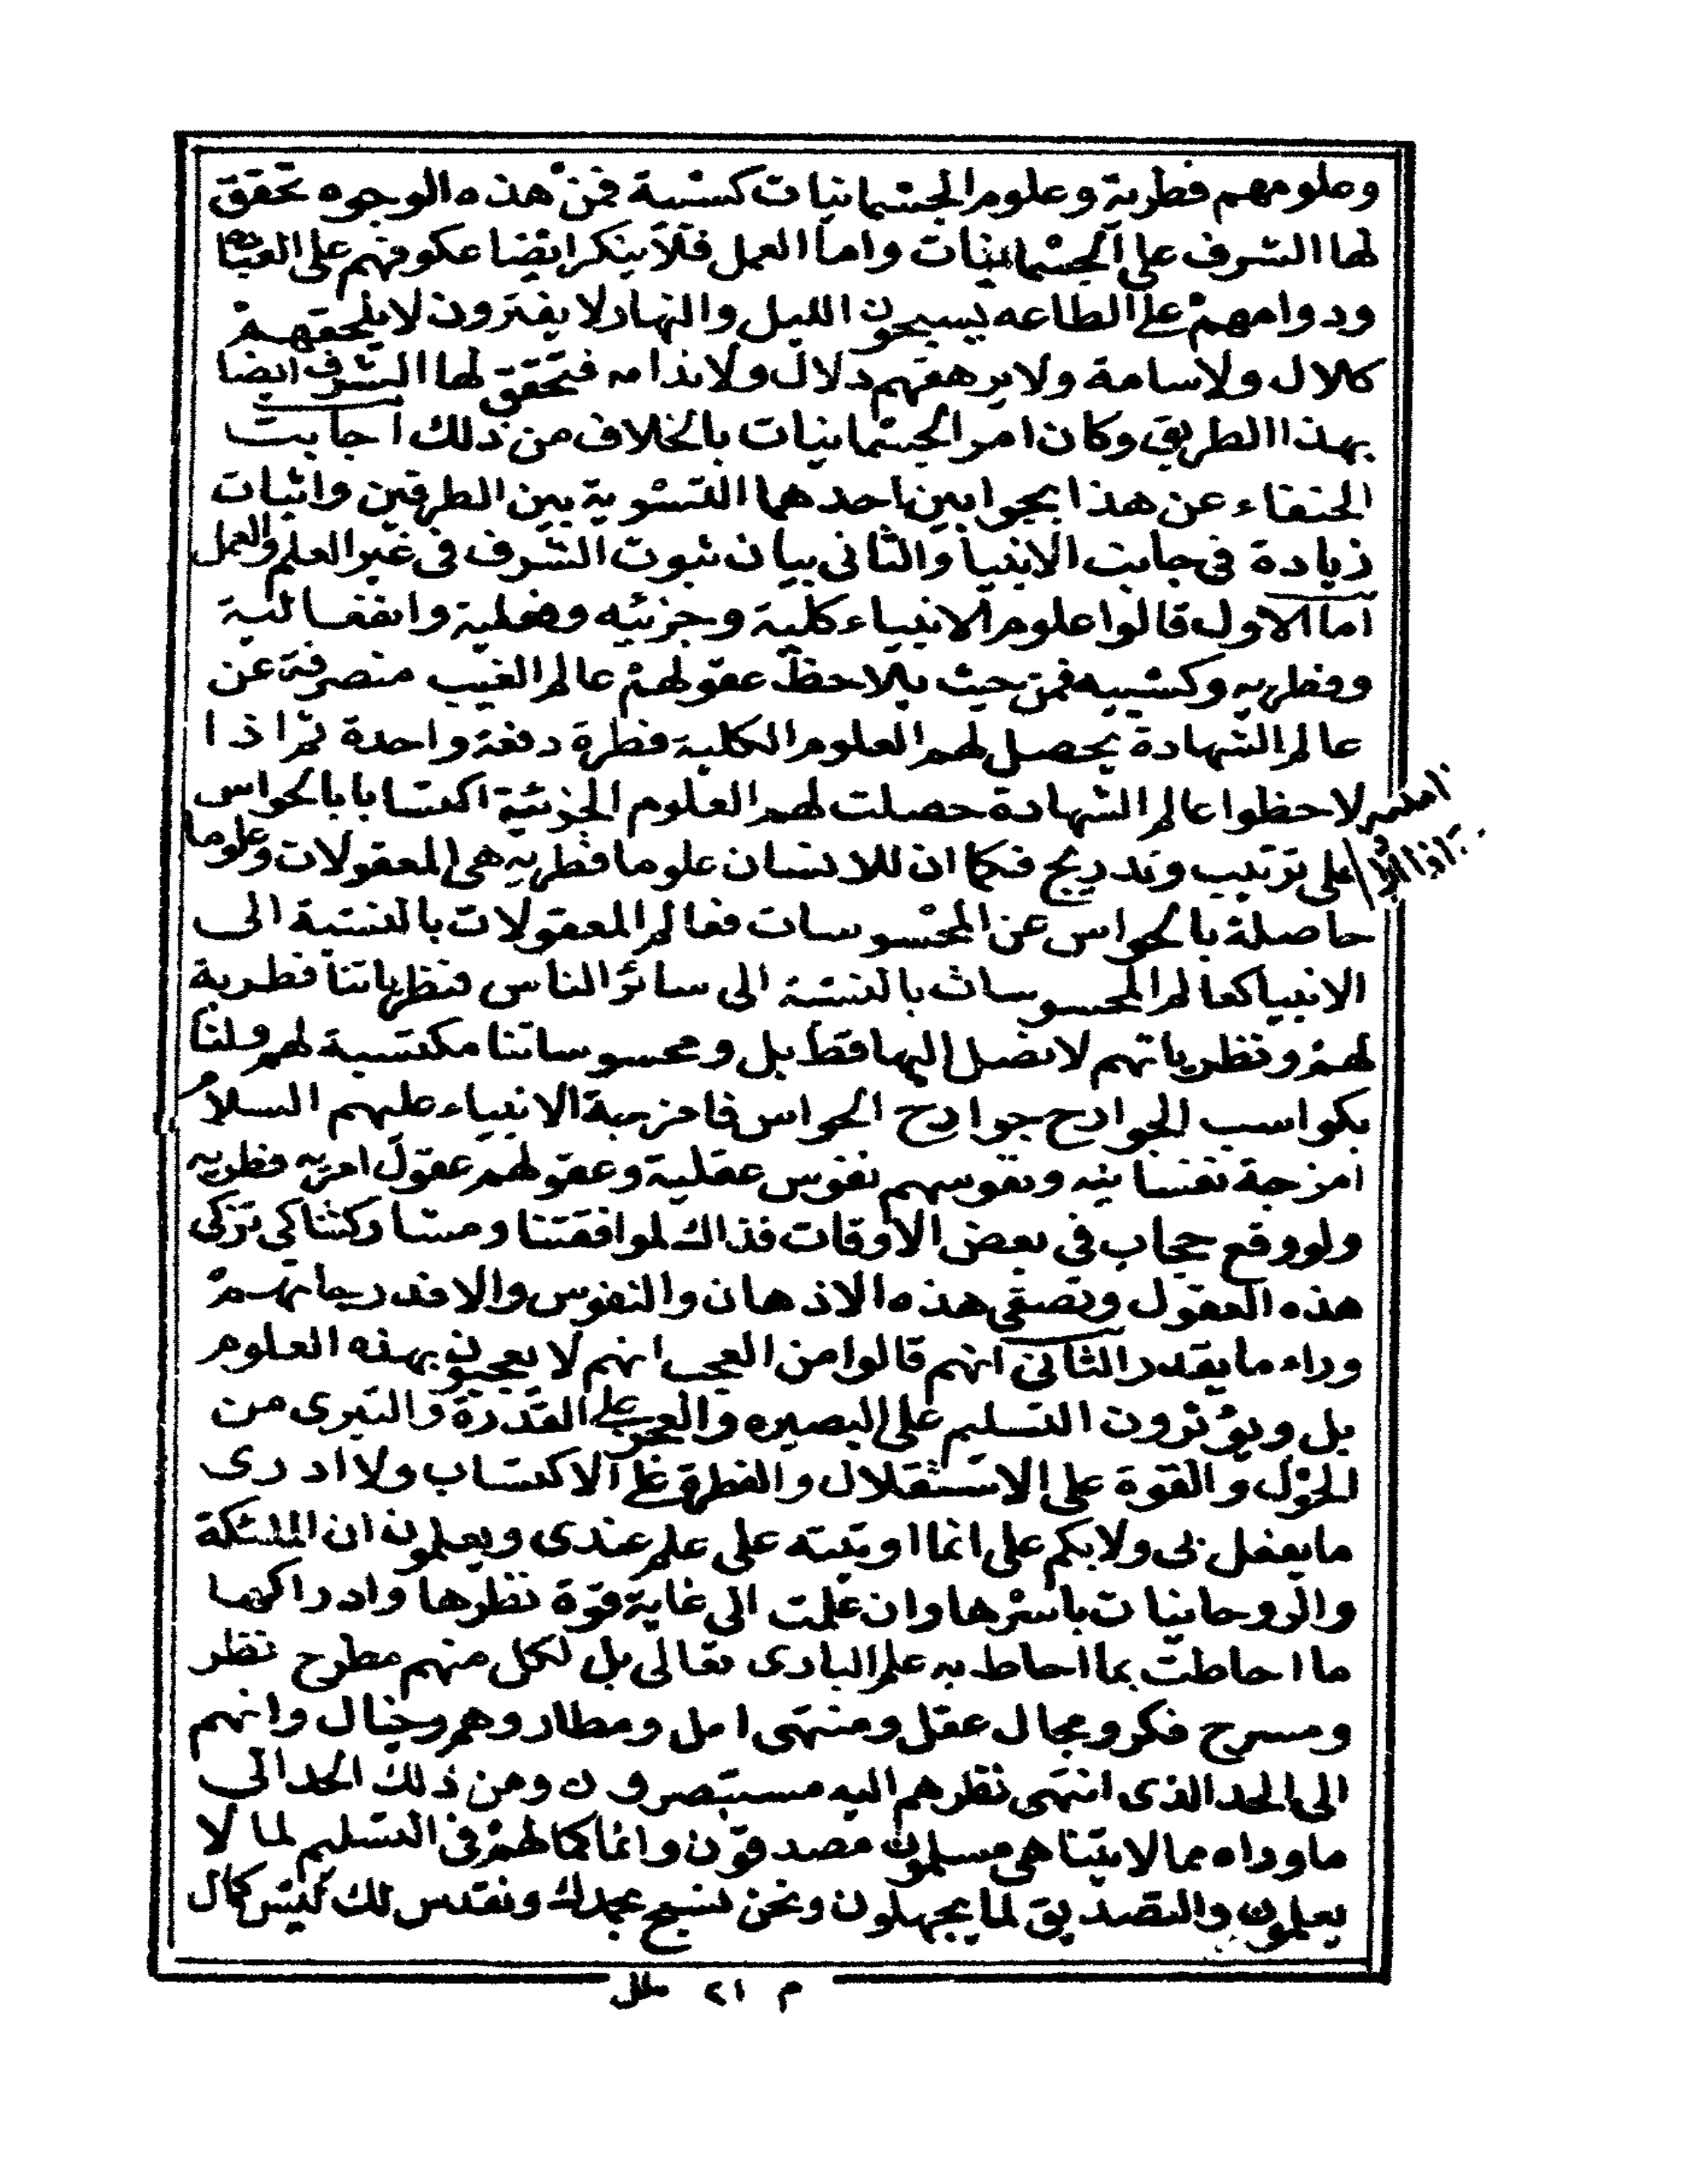 وعلومهم فطرية وعلوم الجسمانيات كسبية فمن هذه الوجوه تحقق
لها الشرف على الجسمانيات واما العمل فلا ينكر ايضا عكوفهم على العبادة
ودوامهم على الطاعه يسبحون الليل والنهار لا يفترون لا يلحقهم
كلال ولا سامة ولا يرهقهم دلال ولا ندامه فتحقق لها الشرف ايضا
بهذا الطريق وكان امر الجسمانيات بالخلاف من ذلك اجابت
الحنفاء عن هذا بجوابين احدهما التسوية بين الطرفين واثبات
زيادة في جانب الانبيا والثاني بيان ثبوت الشرف في غير العلم والعمل
اما الاول قالوا علوم الانبياء كلية وجزئيه وفعلية وانفعالية
وفطريه وكسبيه فمن حيث يلاحظ عقولهم عالم الغيب منصرفة عن
عالم الشهادة يحصل لهم العلوم الكلية فطرة دفعة واحدة ثم اذا
لاحظوا عالم الشهادة حصلت لهم العلوم الجزئية اكتسابا بالحواس
على ترتيب وتدريج فكما ان للانسان علوما فطريه هي المعقولات وعلوما
حاصلة بالحواس عن المحسوسات فعالم المعقولات بالنسبة الى
الانبيا كعالم المحسوسات بالنسبة الى سائر الناس فنظرياتنا فطرية
لهم ونظرياتهم لا نصل اليها فقط بل ومحسوساتنا مكتسبة لهم ولنا
بكواسب الجوارح جوارح الحواس فامزجة الانبياء عليهم السلام
امزجة نفسانيه ونفوسهم نفوس عقلية وعقولهم عقول امريه فطريه
ولو وقع حجاب في بعض الاوقات فذاك لموافقتنا ومشاركتنا كي تزكى
هذه العقول وتصفى هذه الاذهان والنفوس والا فدرجاتهم
وراء ما يقدر الثاني انهم قالوا من العجب انهم لا يعجبون بهذه العلوم
بل ويؤثرون التسليم على البصيره والعجز على القدرة والتبرى من
الحول والقوة على الاستقلال والفطرة على الاكتساب ولا ادرى
ما يفعل بى ولا بكم على انما اوتيته على علم عندى ويعلمون ان الملئكة
والروحانيات باسرها وان علمت الى غاية قوة نظرها وادراكها
ما احاطت بما احاط به علم البارى تعالى بل لكل منهم مطرح نظر
ومسرح فكر ومجال عقل ومنتهى امل ومطار وهم وخيال وانهم
الى الحد الذى انتهى نظرهم اليه مستبصرون ومن ذلك الحد الى
ما وراه مما لا يتناهى مسلمون مصدقون وانما كمالهم في التسليم لما لا
يعلمون والتصديق لما يجهلون ونحن نسبح بحمدك ونقدس لك ليس كمال
م ٢١ ملل